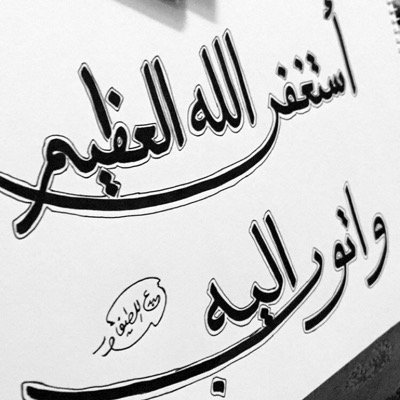 أستغفر الله العظيم
واتوب اليه